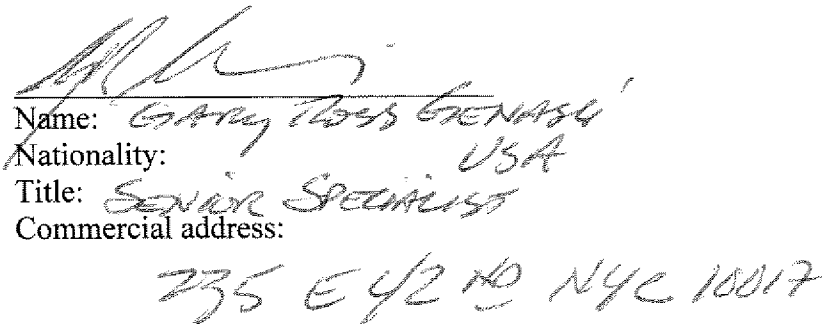 Name: GARY ROSS GENASCI
Nationality: USA
Title: SENIOR SPECIALIST
Commercial address:
235 E 42 ND NYC 10017